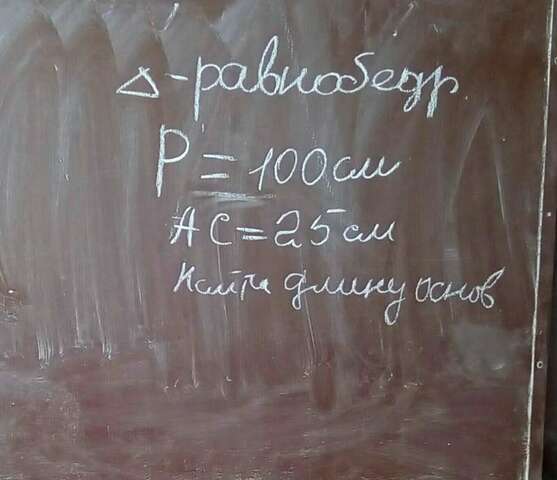 Δ-равнобедр
P = 100 см
AC = 25 см
Найти длину основ